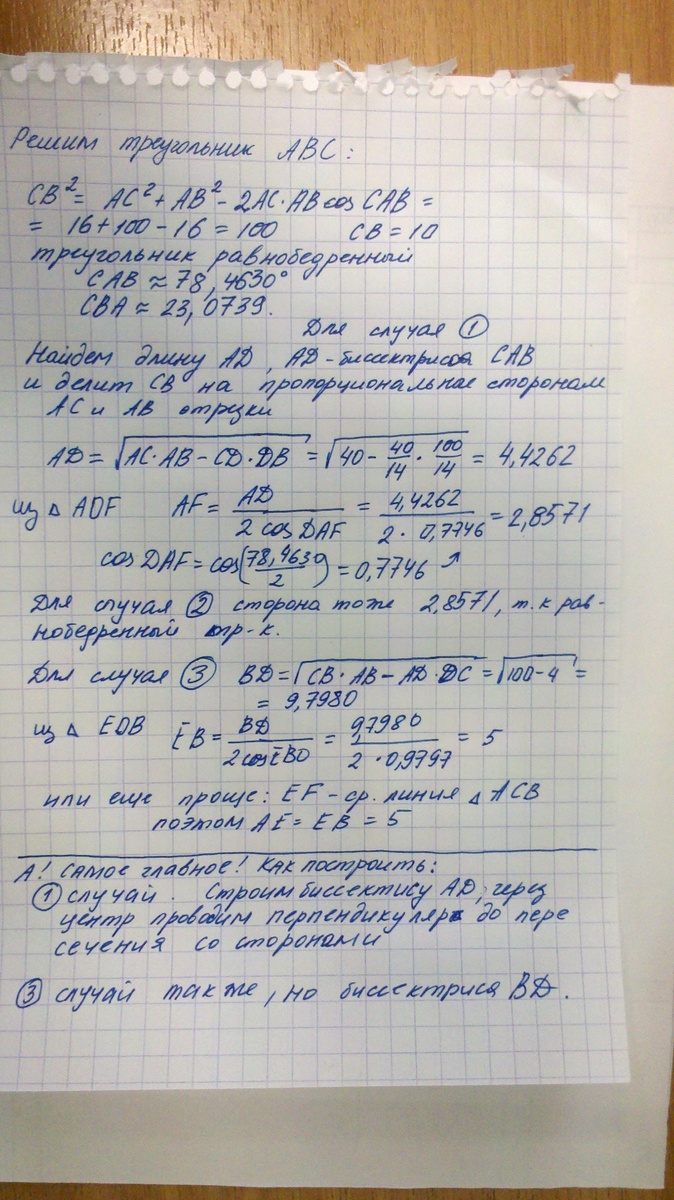 Решим треугольник ABC:
CB² = AC² + AB² - 2AC·AB cos CAB =
= 16 + 100 - 16 = 100 CB = 10
треугольник равнобедренный
CAB ≈ 78,4630°
CBA ≈ 23,0739.
Для случая ①
Найдем длину AD, AD-биссектриса CAB
и делит CB на пропорциональные сторонам
AC и AB отрезки
AD = √(AC·AB - CD·DB) = √(40 - 40/14 · 100/14) = 4,4262
из △ ADF AF = AD / (2 cos DAF) = 4,4262 / (2 · 0,7746) = 2,8571
cos DAF = cos(78,4630 / 2) = 0,7746 ↗
Для случая ② сторона тоже 2,8571, т.к рав-
нобедренный тр-к.
Для случая ③ BD = √(CB·AB - AD·DC) = √(100-4) =
= 9,7980
из △ EDB EB = BD / (2 cos EBD) = 9,7980 / (2 · 0,9797) = 5
или еще проще: EF - ср. линия △ ACB
поэтом AE = EB = 5
А! Самое главное! Как построить:
① случай. Строим биссектису AD, через
центр проводим перпендикуляр до пере
сечения со сторонами
③ случай так же, но биссектриса BD.